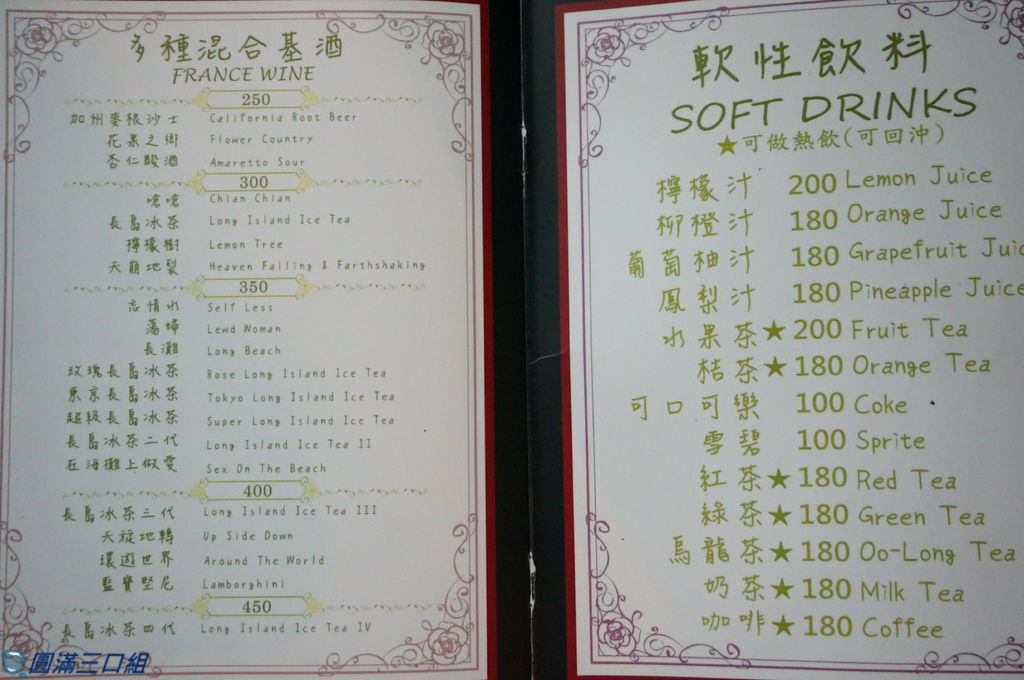 多種混合基酒
FRANCE WINE
250
加州麥根沙士 California Root Beer
花果之鄉 Flower Country
杏仁酸酒 Amaretto Sour
300
嗆嗆 Chian Chian
長島冰茶 Long Island Ice Tea
檸檬樹 Lemon Tree
天崩地裂 Heaven Falling & Farthshaking
350
忘情水 Self Less
蕩婦 Lewd Woman
長灘 Long Beach
玫瑰長島冰茶 Rose Long Island Ice Tea
東京長島冰茶 Tokyo Long Island Ice Tea
超級長島冰茶 Super Long Island Ice Tea
長島冰茶二代 Long Island Ice Tea II
在海攤上做愛 Sex On The Beach
400
長島冰茶三代 Long Island Ice Tea III
天旋地轉 Up Side Down
環遊世界 Around The World
藍寶堅尼 Lamborghini
450
長島冰茶四代 Long Island Ice Tea IV
圓滿三口組
軟性飲料
SOFT DRINKS
★可做熱飲(可回沖)
檸檬汁 200 Lemon Juice
柳橙汁 180 Orange Juice
葡萄柚汁 180 Grapefruit Juic
鳳梨汁 180 Pineapple Juice
水果茶★200 Fruit Tea
桔茶★180 Orange Tea
可口可樂 100 Coke
雪碧 100 Sprite
紅茶★180 Red Tea
綠茶★180 Green Tea
烏龍茶★180 Oo-Long Tea
奶茶★180 Milk Tea
咖啡★180 Coffee